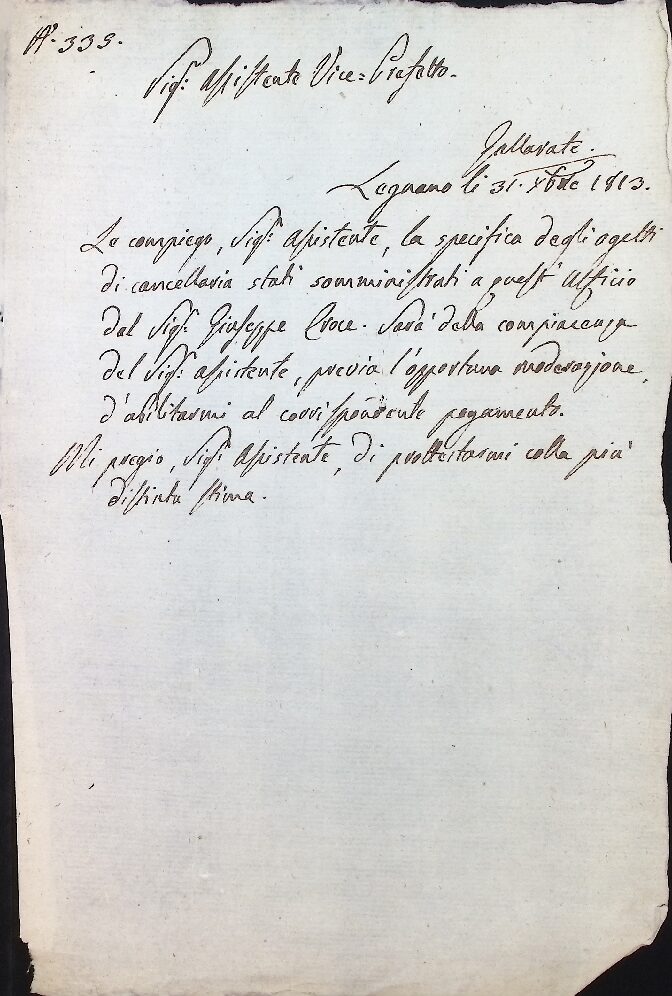 N.° 339.
Sig.r Assistente Vice=Prefetto.
Gallarate.
Legnano li 31. Xbre 1813.
Le compiego, Sig.r Assistente, la specifica degli ogetti
di cancellaria stati somministrati a quest' Ufficio
dal Sig.r Giuseppe Croce. Sarà della compiacenza
del Sig.r Assistente, previa l'opportuna moderazione,
d'abilitarmi al corrispondente pagamento.
Mi pregio, Sig.r Assistente, di prottestarmi colla più
distinta stima.